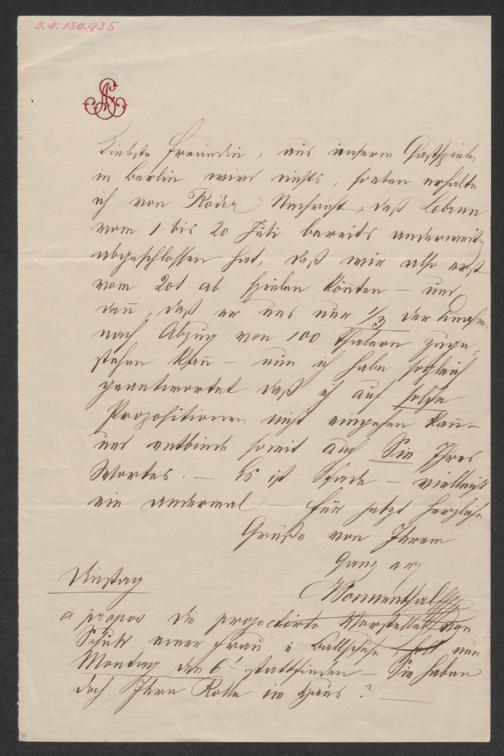 J.N. 130.935
AS
Liebste Freundin, aus unserm Gastspiele
in Berlin wird nichts, soeben erhalte
ich von Röder Nachricht, daß Lebrun
vom 1 bis 20 Juli bereits anderweitig
abgeschlossen hat, daß wir also erst
vom 20t ab spielen könten – und
dan, daß er uns nur 1/3 der Einahme
nach Abzug von 100 Thalern zuge-
stehen kan – nun ich habe sogleich
geantwortet daß ich auf solche
Propositionen nicht eingehen kan –
und entbinde somit auch Sie Ihres
Wortes. – Es ist Schade – vielleicht
ein andermal – für jetzt herzliche
Grüße von Ihrem
Ganz erg
Sonnenthal
Dinstag
a propos die projectirte Vorstellung von
Schuh einer Frau i Ballschuhe soll nun
Montag den 6t stattfinden – Sie haben
doch Ihre Rolle im Haus? –